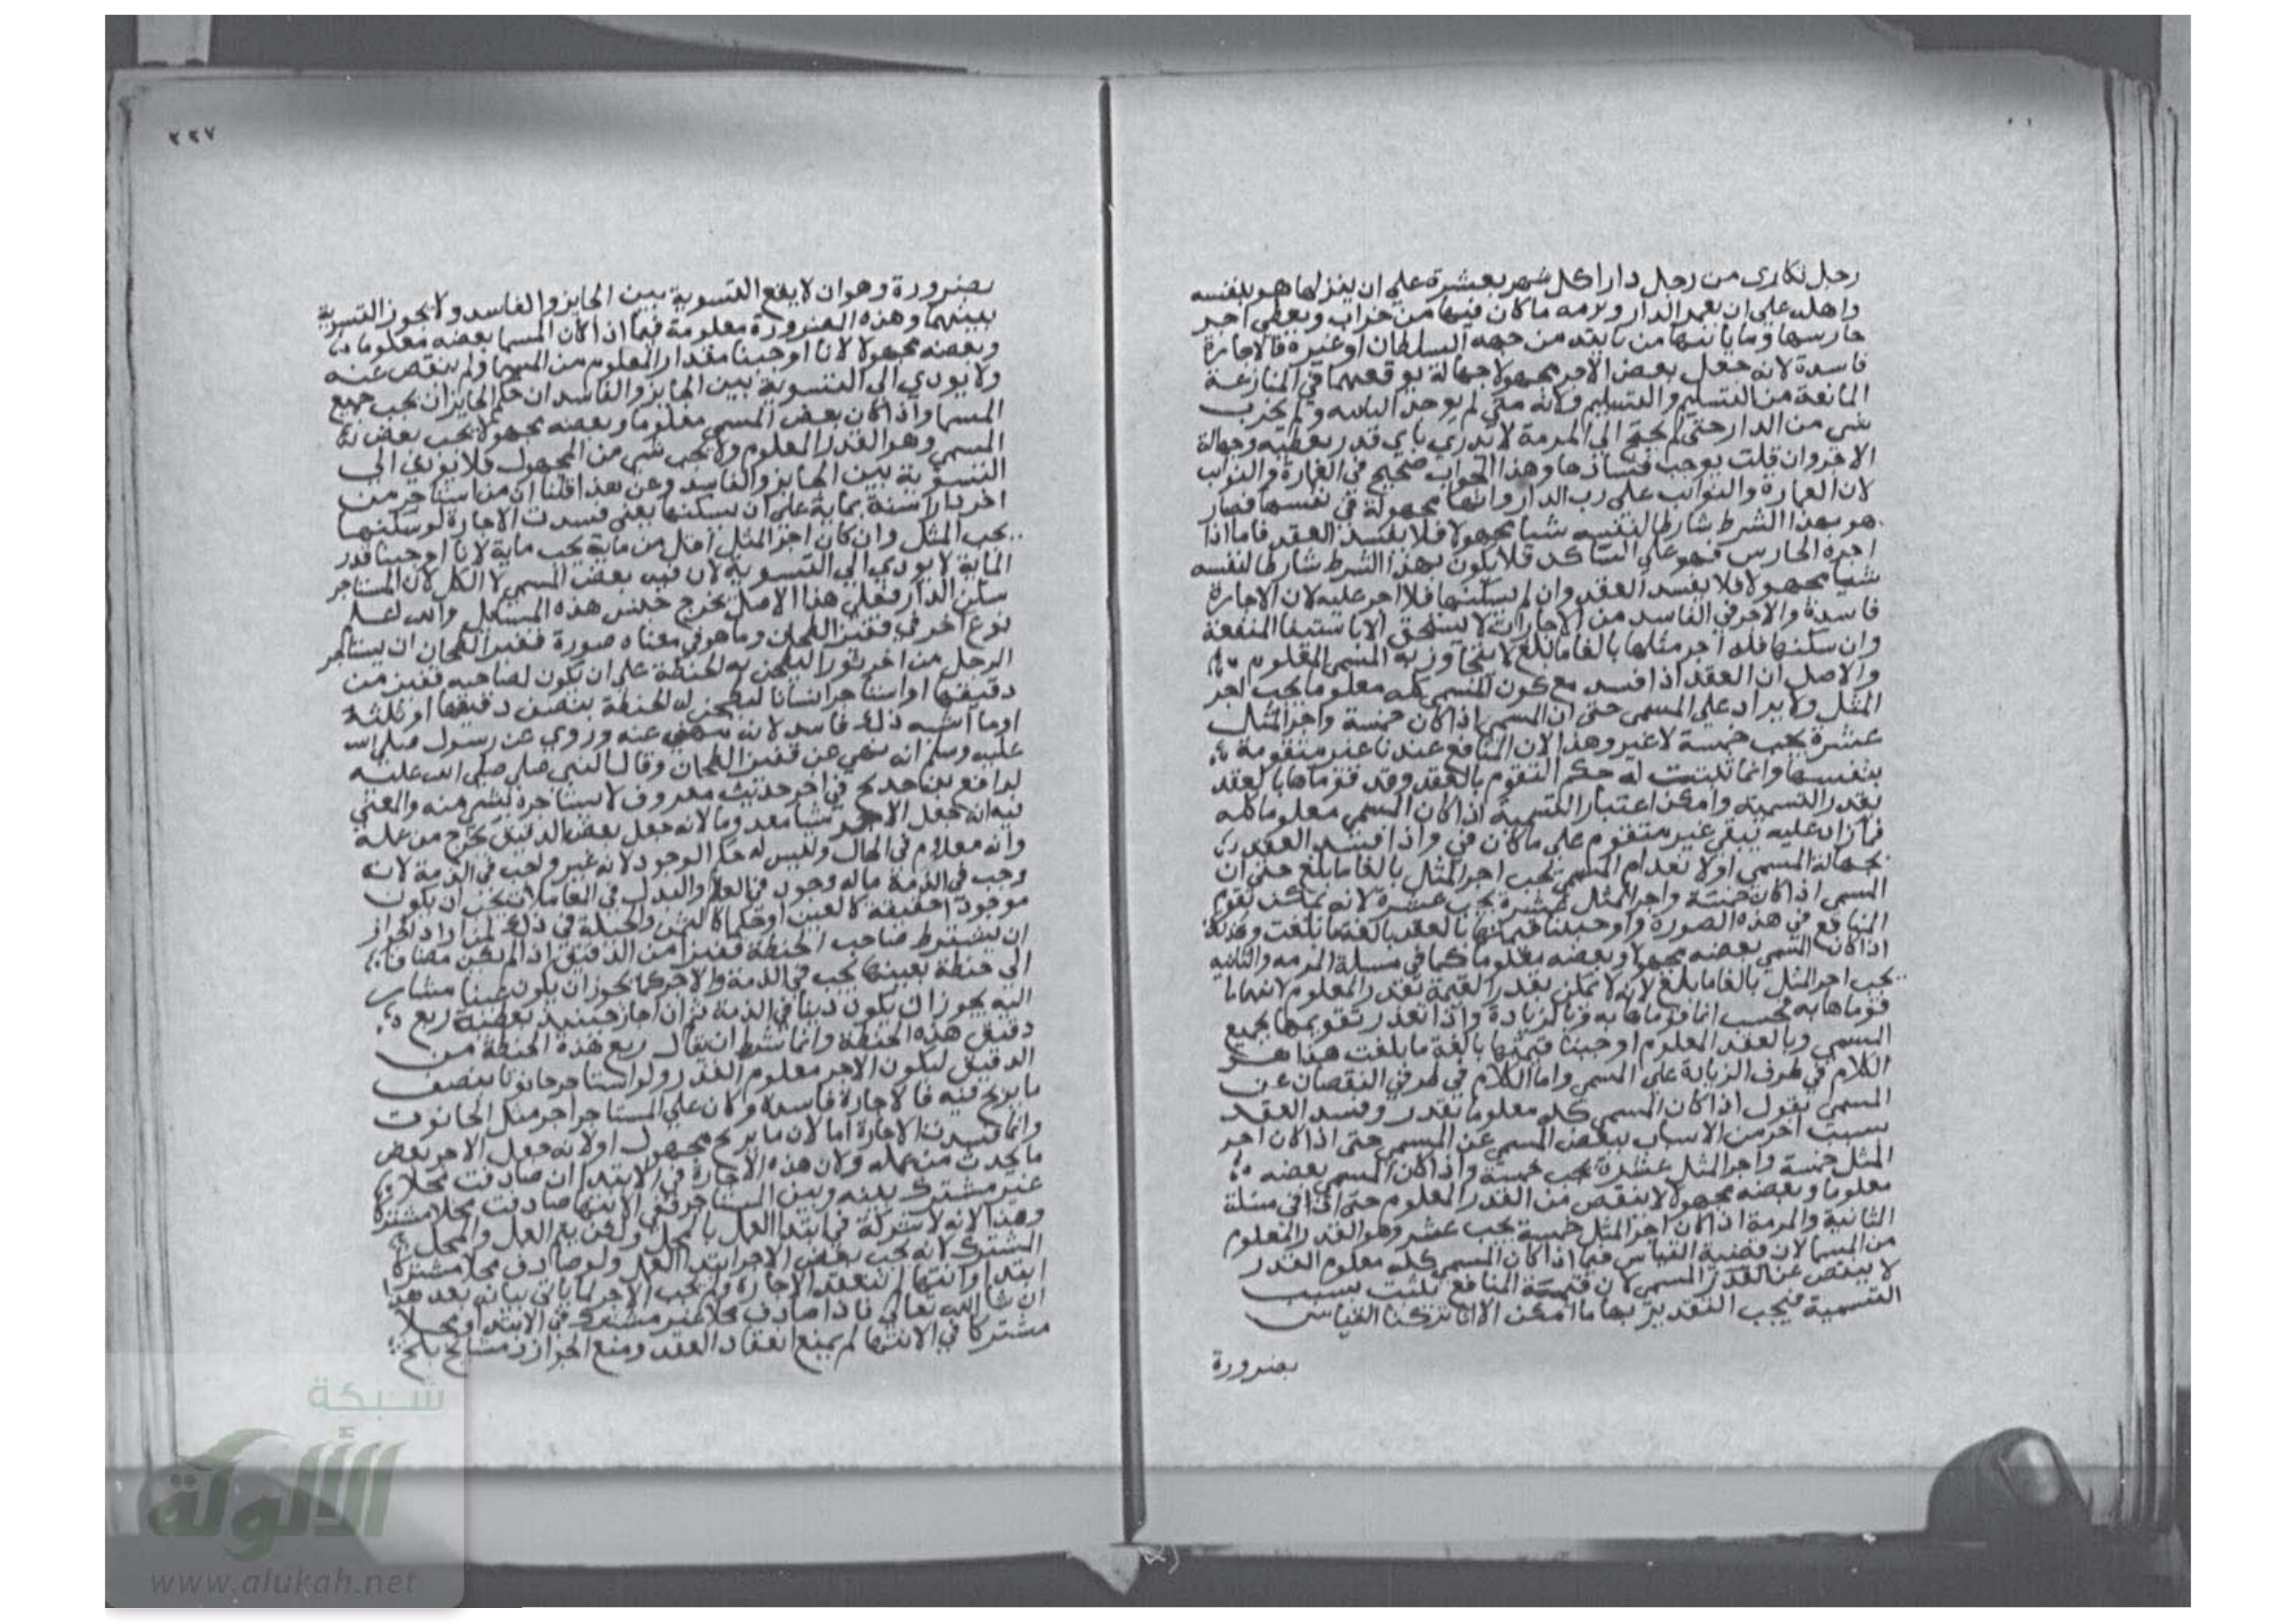 رجل تكارى من رجل دارا كل شهر بعشرة على ان ينزلها هو بنفسه
واهله على ان يعمر الدار ويرمه ما كان فيها من خراب ويعطى اجر
حارسها وما يأتيها من نايبة من جهة السلطان او غيره فالاجارة
فاسدة لانه جعل بعض الاجر مجهولا جهالة توقعهما في المنازعة
المانعة من التسليم والتسلم ولانه متى لم يوجد النائبه ولم يخرب
شي من الدار حتى لم يحتج الى المرمة لا يدرى باى قدر يعطيه وجهالة
الاجر وان قلت يوجب فسادها وهذا الجواب صحيح في العمارة والنوائب
لان العمارة والنوائب على رب الدار وانها مجهولة في نفسها فصار
هو بهذا الشرط شارطا لنفسه شيا مجهولا فلا يفسد العقد فاما اذا
اجرة الحارس فهو على الساكن فلا يكون بهذا الشرط شارطا لنفسه
شيا مجهولا فلا يفسد العقد وان لم يسكنها فلا اجر عليه لان الاجارة
فاسدة والاجر في الفاسد من الاجارات لا يستحق الا باستيفا المنفعة
وان سكنها فله اجر مثلها بالغا ما بلغ لا يتجاوز به المسمى المعلوم
والاصل ان العقد اذا فسد مع كون المسمى كله معلوما يجب اجر
المثل ولا يزاد على المسمى حتى ان المسمى اذا كان خمسة واجر المثل
عشرة يجب خمسة لا غير وهذا لان المنافع عندنا غير متقومة
بنفسها وانما يثبت له حكم التقوم بالعقد وقد قوماها بالعقد
بقدر التسمية وامكن اعتبار التسمية اذا كان المسمى معلوما كله
فما زاد عليه يبقى غير متقوم على ما كان في واذا فسد العقد
بجهالة المسمى او لانعدام المسمى يجب اجر المثل بالغا ما بلغ حتى ان
المسمى اذا كان خمسة واجر المثل عشرة يجب عشرة لانه يمكن تقوم
المنافع في هذه الصورة واوجبنا قيمتها بالعقد بالغة ما بلغت وكذلك
اذا كان المسمى بعضه مجهولا وبعضه معلوما كما في مسلة المرمه والنائبه
يجب اجر المثل بالغا ما بلغ لانه لا يمكن تقدير القيمة بقدر المعلوم لانهما ما
قوماها به فحسب انما قوماها به وبالزيادة واذا تعذر تقويمها بجميع
المسمى وبالعقد المعلوم اوجبنا قيمتها بالغة ما بلغت هذا هو
الكلام في طرف الزيادة على المسمى واما الكلام في طرف النقصان عن
المسمى نقول اذا كان المسمى كله معلوما بقدر وفسد العقد
بسبب اخر من الاسباب ينقص المسمى عن المسمى حتى اذا كان اجر
المثل خمسة واجر المثل عشرة يجب خمسة واذا كان المسمى بعضه
معلوما وبعضه مجهولا لا ينقص من القدر المعلوم حتى ان في مسلة
الثانية والمرمة اذا كان اجر المثل خمسة يجب عشر وهو القدر المعلوم
من المسما لان قضية القياس فيما اذا كان المسمى كله معلوم القدر
لا ينقص عن القدر المسمى لان قيمة المنافع تثبت بسبب
التسمية فيجب التقدير بها ما امكن الا انا تركنا القياس
بضرورة
٢٢٧
بضرورة وهو ان لا يقع التسوية بين الجايز والفاسد ولا يجوز التسوية
بينهما وهذه الضرورة معلومة فيما اذا كان المسما بعضه معلوما
وبعضه مجهولا لانا اوجبنا مقدار المعلوم من المسما ولم ينقص عنه
ولا يودي الى التسوية بين الجايز والفاسد ان حكم الجايز ان يجب جميع
المسما واذا كان بعض المسمى معلوما وبعضه مجهولا يجب بعض
المسمى وهو القدر المعلوم ولا يجب شي من المجهول فلا يودي الى
التسوية بين الجايز والفاسد وعن هذا قلنا ان من استاجر من
اخر دارا سنة بماية على ان يسكنها يعنى فسدت الاجارة لو سكنها
يجب المثل وان كان اجر المثل اقل من ماية يجب ماية لانا اوجبنا قدر
الماية لا يودي الى التسوية لان فيه بعض المسمى لا الكل لان المستاجر
سكن الدار فعلى هذا الاصل يخرج جنس هذه المسائل والله اعلم
نوع اخر في قفيز الطحان وما هو في معناه صورة قفيز الطحان ان يستاجر
الرجل من اخر ثورا ليطحن به الحنطة على ان يكون لصاحبه قفيز من
دقيقها او استاجر انسانا ليطحن له الحنطة بنصف دقيقها او ثلثه
او ما اشبه ذلك فاسد لانه منهى عنه وروي عن رسول صلى الله
عليه وسلم انه نهى عن قفيز الطحان وقال النبي صلى صلى الله عليه
لرافع بن خديج في اخر حديث معروف لا تستاجره بشي منه والمعنى
فيه انه جعل الاجر شيا معدوما لانه جعل بعض الدقيق يخرج من عمله
وانه معدوم في الحال وليس له حكم الوجود لانه غير واجب في الذمة لانه
وجب في الذمة ماله وجود في العالم والبدل في المعاملات يجب ان يكون
موجودا حقيقة كالعين او حكما كالثمن والحيلة في ذلك لمن اراد الجواز
ان يشترط صاحب الحنطة قفيزا من الدقيق اذا لم يكن مضافا
الى حنطة بعينها يجب في الذمة والاجر كما يجوز ان يكون عينا مشار
اليه يجوز ان يكون دينا في الذمة ثم اذا جاز حينيذ يعطيه ربع
دقيق هذه الحنطة وانما شرط ان يقال ربع هذه الحنطة من
الدقيق ليكون الاجر معلوم القدر ولو استاجر حانوتا بنصف
ما يربح فيه فالاجارة فاسدة وكان على المستاجر اجر مثل الحانوت
وانما فسدت الاجارة اما لان ما يربح مجهول او لانه جعل الاجر بعض
ما يحدث من عمله ولان هذه الاجارة في الابتدا ان صادفت محلا
غير مشترك بينه وبين المستاجر ففي الانتها صادفت محلا مشتركا
وهذا لانه لا شركة في ابتدا العمل بالمحل ولكن يتم العمل والمحل
المشترك لانه يجب بعض الاجر ابتدا العمل ولو صادف محلا مشتركا
ابتدا وانتها لم تنعقد الاجارة ولم يجب الاجر لما ياتى بيانه بعد هذا
ان شا الله تعالى فاذا صادف محلا غير مشترك في الابتدا ومحلا
مشتركا في الانتها لم يمنع انعقاد العقد ومنع الجواز ومشايخ بلخ
شبكة
الألوكة
www.alukah.net